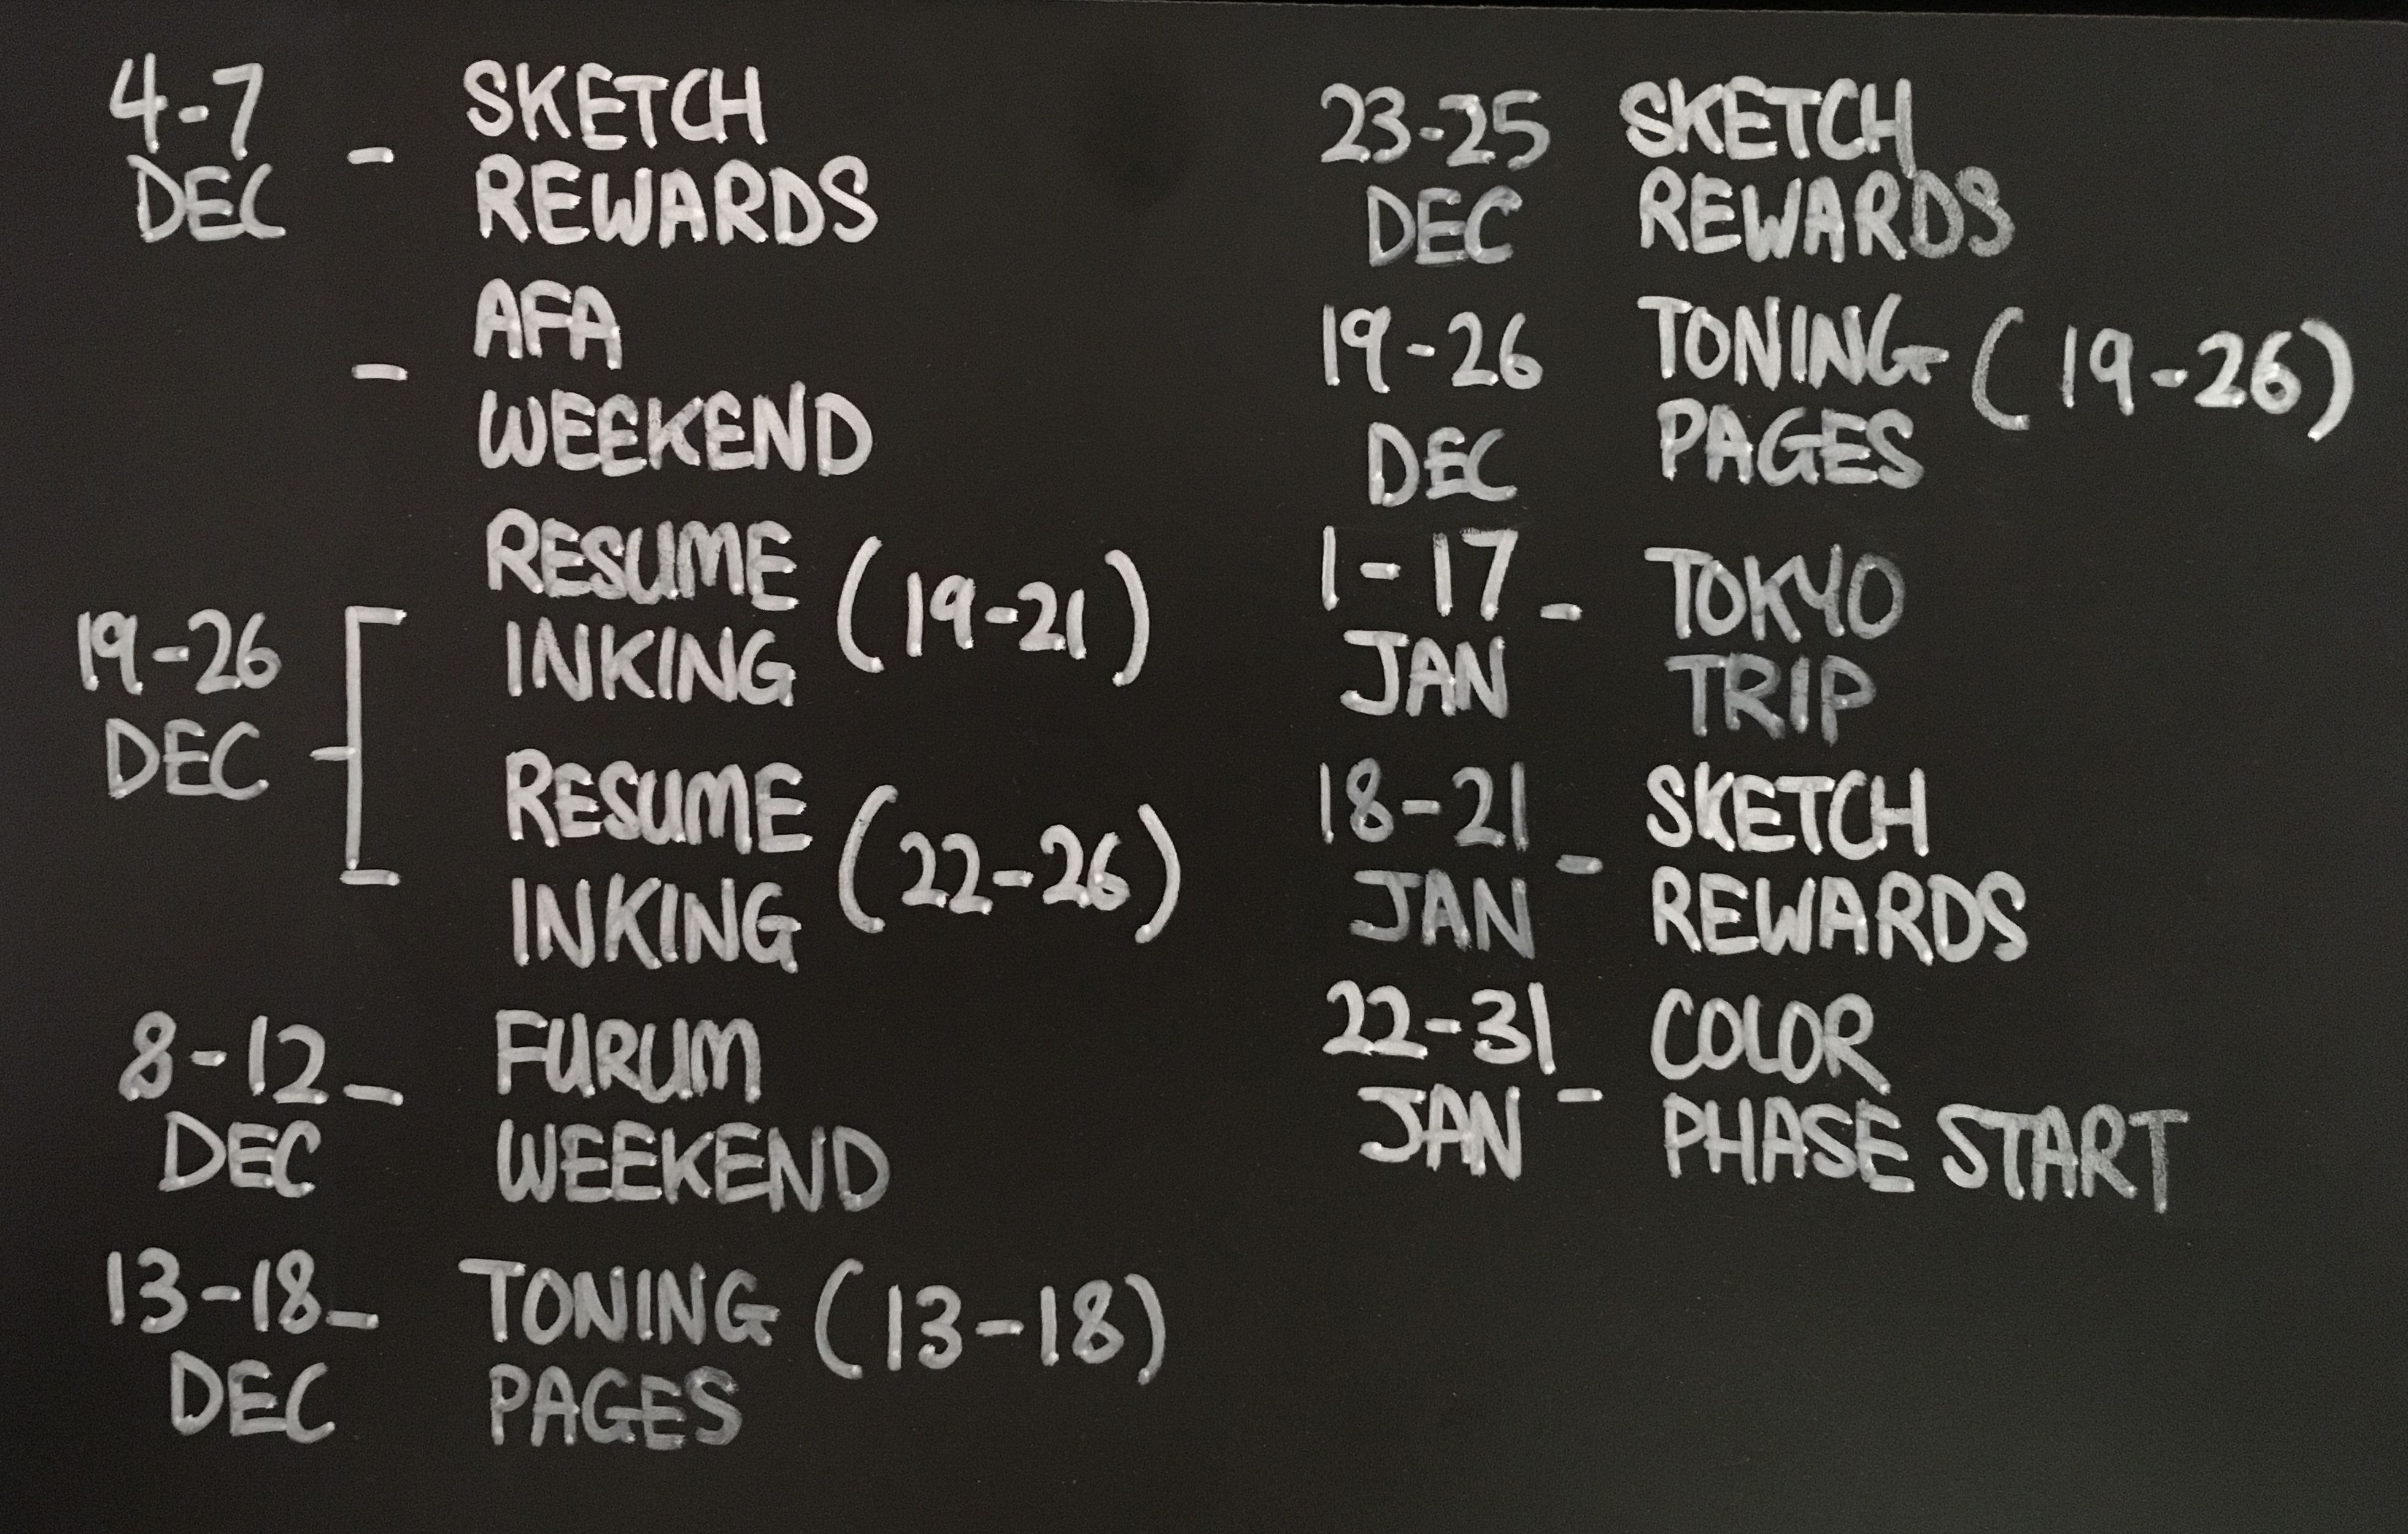 4-7 - SKETCH
DEC REWARDS
- AFA
WEEKEND
RESUME (19-21)
INKING
19-26
DEC
RESUME (22-26)
INKING
8-12 - FURUM
DEC WEEKEND
13-18 - TONING (13-18)
DEC PAGES
23-25 SKETCH
DEC REWARDS
19-26 TONING (19-26)
DEC PAGES
1-17 - TOKYO
JAN TRIP
18-21 - SKETCH
JAN REWARDS
22-31 - COLOR
JAN PHASE START